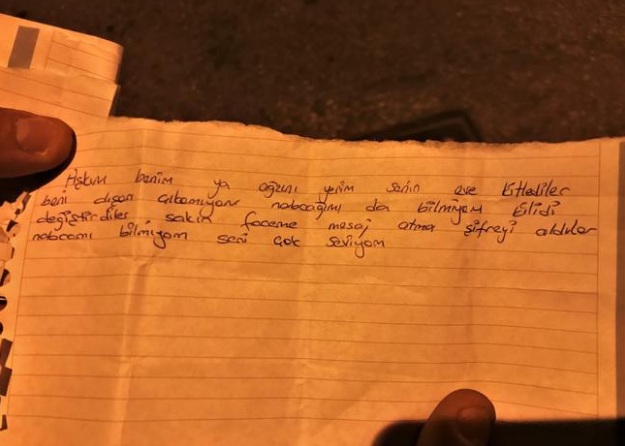 Aşkım benim ya ağzını yerim senin eve kitlediler
beni dışarı çıkamıyom nabcağımı da bilmiyom kilidi
değiştirdiler sakın faceme mesaj atma şifreyi aldılar
nabcamı bilmiyom seni çok seviyom